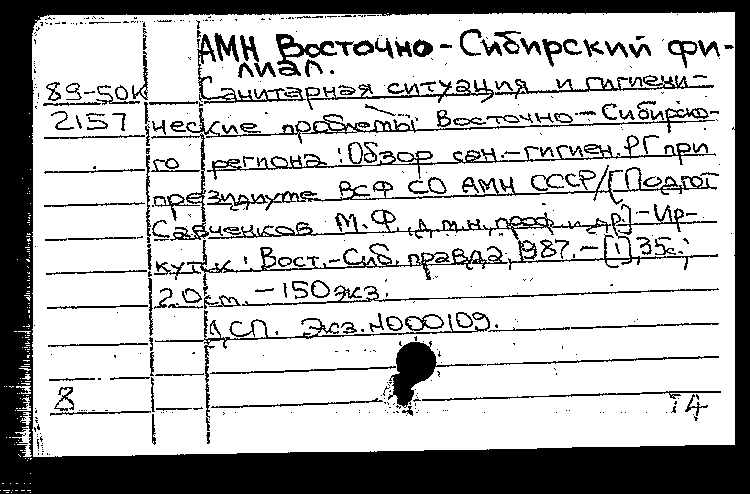 АМН Восточно-Сибирский фи-
лиал.
89-50к Санитарная ситуация и гигиени-
2157 ческие проблемы Восточно-Сибирско-
го региона: Обзор сан.-гигиен. РГ при
президиуме ВСФ СО АМН СССР/[Подгот
Савченков М.Ф., д.м.н., проф. и др.]-Ир-
кутск: Вост.-Сиб. правда, 1987.-[1], 35с.;
20см.-150экз.
ДСП. Экз. N000109.
8 74